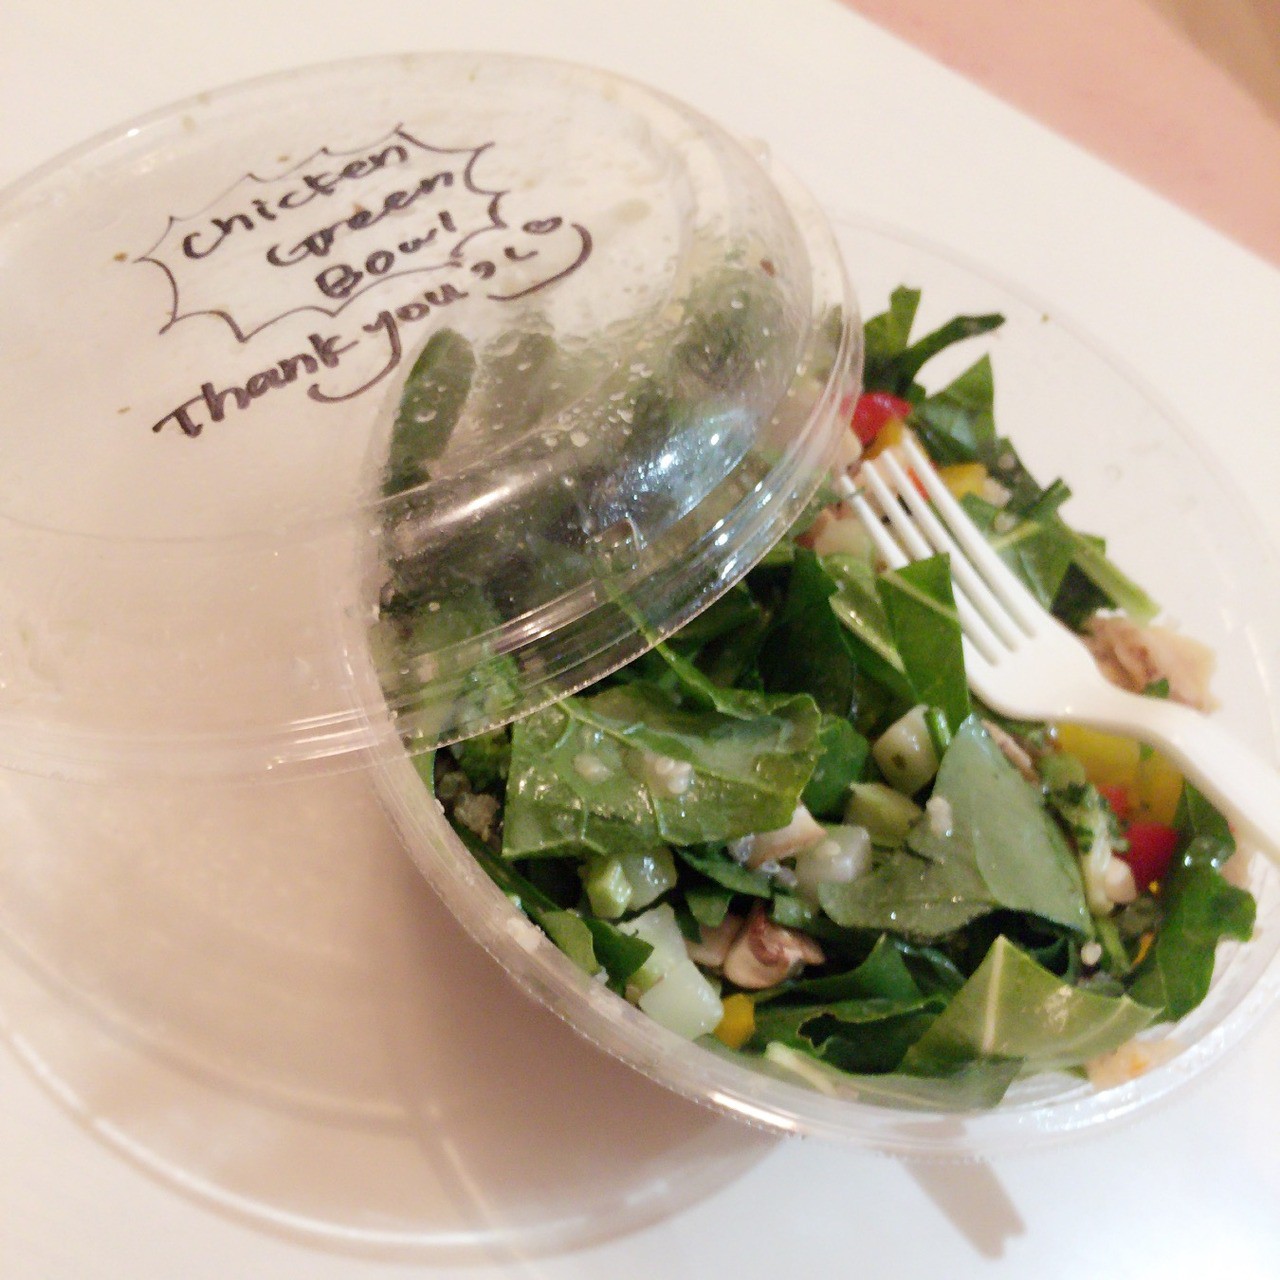 Chicken
Green
Bowl
Thank you